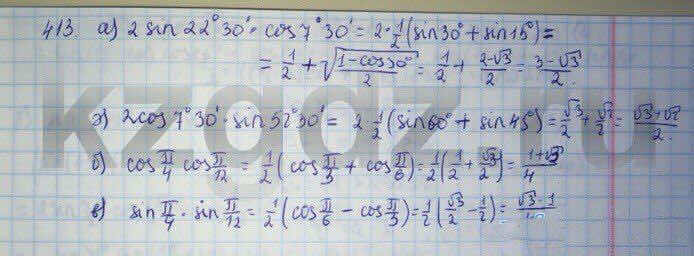 413 а) 2 sin 22°30' · cos 7°30' = 2·1/2 (sin 30° + sin 15°) =
= 1/2 + √((1-cos30°)/2) = 1/2 + (2-√3)/2 = (3-√3)/2.
г) 2cos 7°30' · sin 52°30' = 2·1/2 (sin 60° + sin 45°) = √3/2 + √2/2 = (√3+√2)/2.
б) cos π/4 cos π/12 = 1/2 (cos π/3 + cos π/6) = 1/2 (1/2 + √3/2) = (1+√3)/4
в) sin π/4 · sin π/12 = 1/2 (cos π/6 - cos π/3) = 1/2 (√3/2 - 1/2) = (√3-1)/4
kzgdz.ru